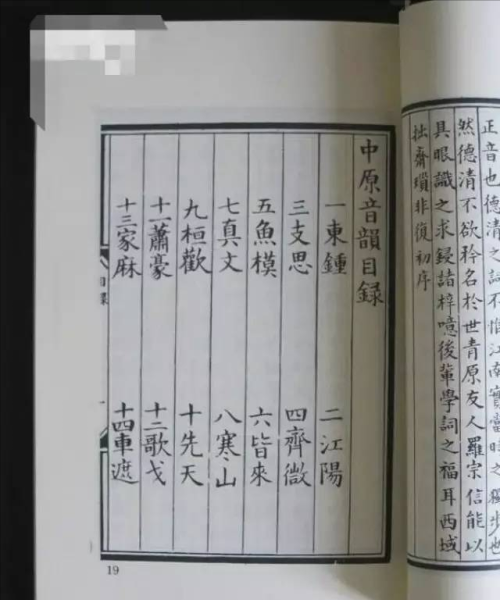 正音也德清之詞不惟江南實當時之獨步也
然德清不欲矜名於世青原友人羅宗信能以
具眼識之求鋟諸梓噫後輩學詞之福耳西域
拙齋瑣非復初序
中原音韻目録
一東鍾 二江陽
三支思 四齊微
五魚模 六皆來
七真文 八寒山
九桓歡 十先天
十一蕭豪 十二歌戈
十三家麻 十四車遮
19